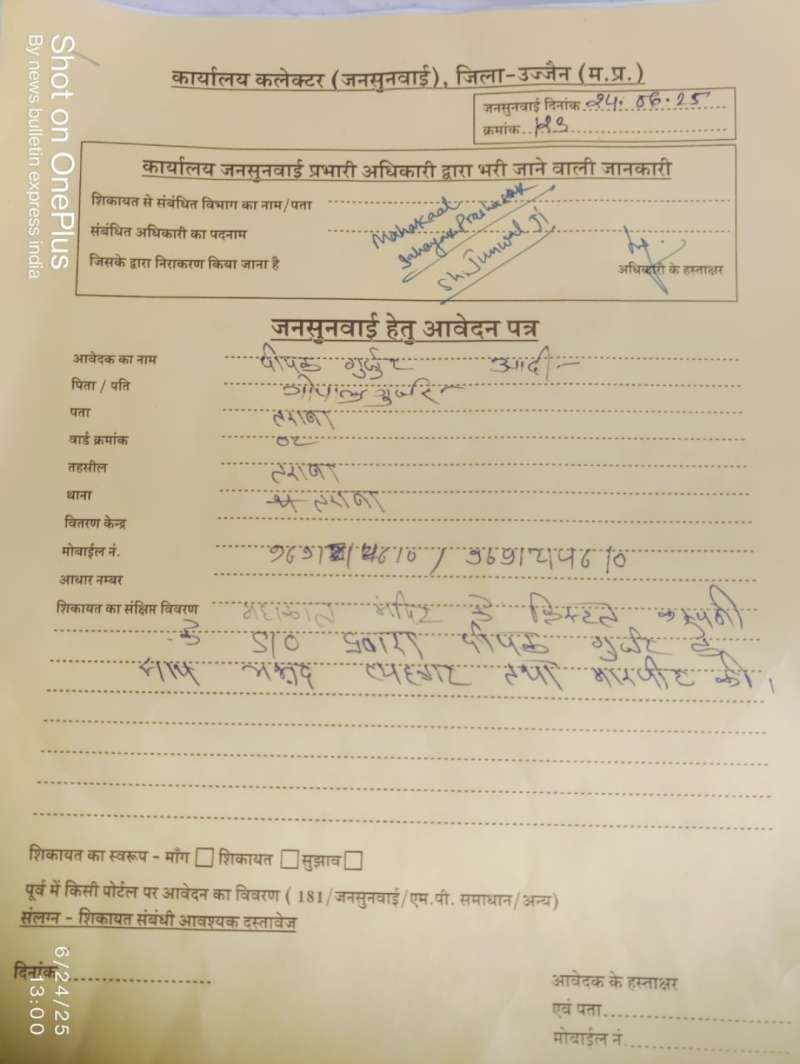 कार्यालय कलेक्टर (जनसुनवाई), जिला-उज्जैन (म.प्र.)
जनसुनवाई दिनांक 24.06.25
क्रमांक
कार्यालय जनसुनवाई प्रभारी अधिकारी द्वारा भरी जाने वाली जानकारी
शिकायत से संबंधित विभाग का नाम/पता
संबंधित अधिकारी का पदनाम
जिसके द्वारा निराकरण किया जाना है
Mahakaal
Sahayak Prashasak
Sh. Junwal Ji
अधिकारी के हस्ताक्षर
जनसुनवाई हेतु आवेदन पत्र
आवेदक का नाम दीपक गुर्जर आदी-
पिता / पति गोपाल गुर्जर
पता तराना
वार्ड क्रमांक 02
तहसील तराना
थाना तराना
वितरण केन्द्र
मोबाईल नं.
आधार नम्बर
शिकायत का संक्षिप्त विवरण महाकाल मंदिर के क्रिस्टल कम्पनी
के द्वारा दीपक गुर्जर के
साथ अभद्र व्यवहार तथा मारपीट की।
शिकायत का स्वरूप - माँग शिकायत सुझाव
पूर्व में किसी पोर्टल पर आवेदन का विवरण ( 181/जनसुनवाई/एम.पी. समाधान/अन्य)
संलग्न - शिकायत संबंधी आवश्यक दस्तावेज
दिनांक
आवेदक के हस्ताक्षर
एवं पता
मोबाईल नं.
Shot on OnePlus
By news bulletin express india
6/24/25 13:00